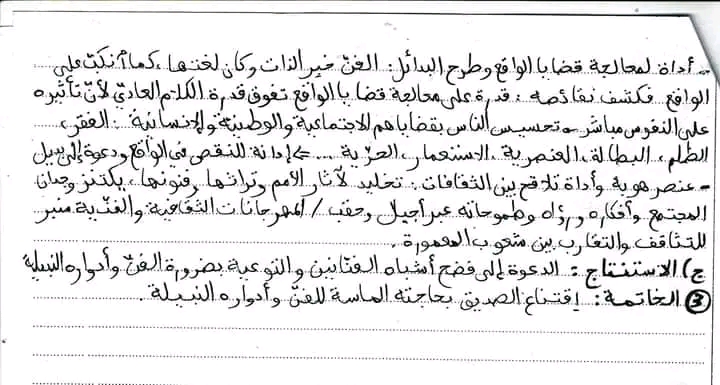 - أداة لمعالجة قضايا الواقع وطرح البدائل: الفنّ خبر الذات وكان لغتها، كما انكبّ على
الواقع فكشف نقائصه: قدرة على معالجة قضايا الواقع تفوق قدرة الكلام العاديّ لأنّ تأثيره
على النفوس مباشر → تحسيس الناس بقضاياهم الاجتماعية والوطنية والإنسانية: الفقر،
الظلم، البطالة، العنصرية، الاستعمار، الحرّية ... => إدانة للنقص في الواقع ودعوة إلى بديل
- عنصر هوية وأداة تلاقح بين الثقافات: تخليد لآثار الأمم وتراثها وفنونها، يكتنز وجدان
المجتمع وأفكاره ورؤاه وطموحاته عبر أجيال وحقب / المهرجانات الثقافية والفنّية منبر
للتثاقف والتقارب بين شعوب المعمورة.
ج) الاستنتاج: الدعوة إلى فضح أشباه الفنّانين والتوعية بضرورة الفنّ وأدواره النبيلة
③ الخاتمة: إقتناع الصديق بحاجته الماسة للفنّ وأدواره النبيلة.